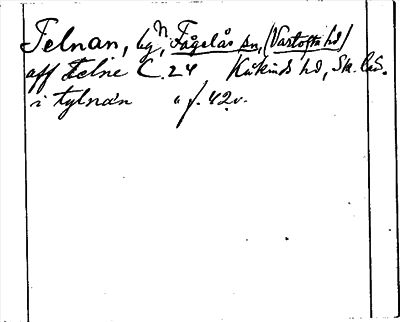 Telnan, by, N. Fågelås sn, (Vartofta hd)
aff Telne C. 24 Kåkinds hd, Sk. län.
i tylnan " f. 42v.